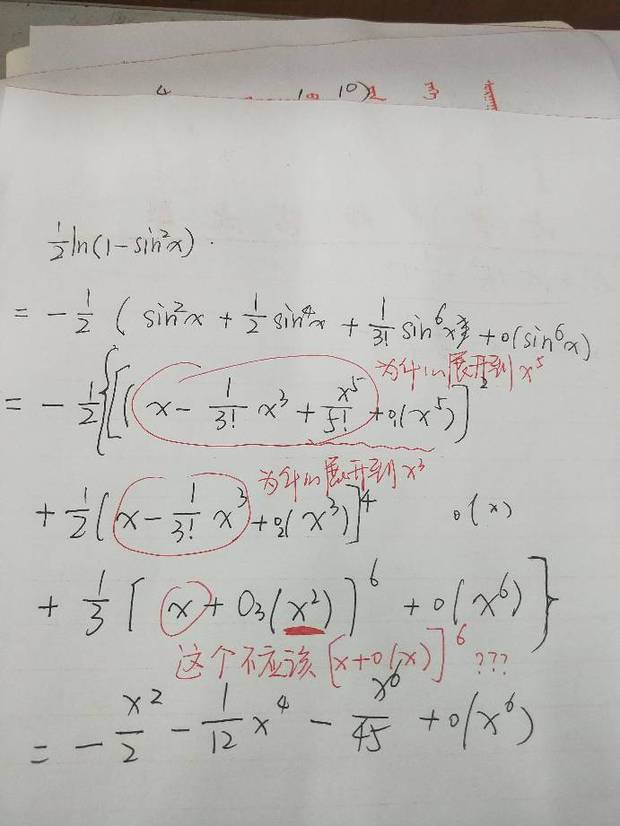 10)
½ln(1-sin²x).
= -½ ( sin²x + ½ sin⁴x + 1/3! sin⁶x + o(sin⁶x)
为什么展开到 x⁵
= -½{[(x - 1/3! x³ + x⁵/5! + o₁(x⁵)]²
为什么展开到 x³
+ ½(x - 1/3! x³ + o₂(x³)]⁴ o(x)
+ 1/3 [ x + O₃(x²)]⁶ + o(x⁶)}
这个不应该 [x+o(x)]⁶ ???
= - x²/2 - 1/12 x⁴ - x⁶/45 + o(x⁶)